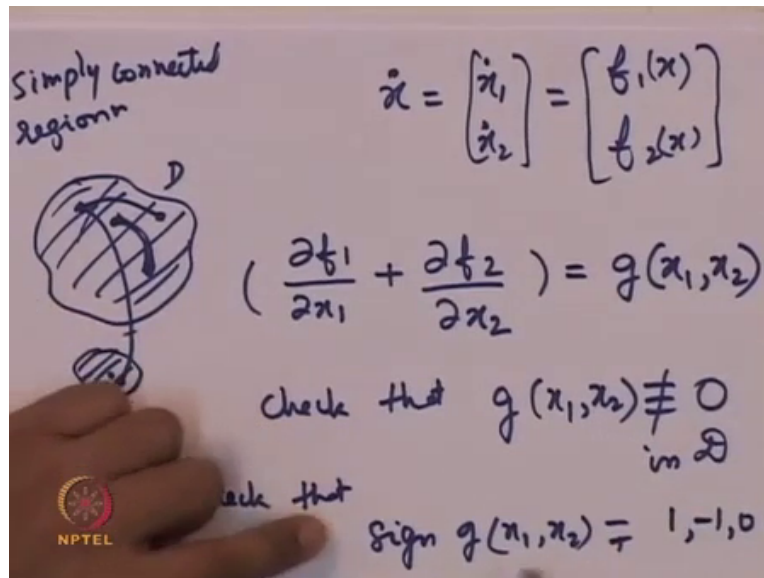 simply connected
region
D
ẋ = [ẋ₁ ẋ₂] = [f₁(x) f₂(x)]
( ∂f₁/∂x₁ + ∂f₂/∂x₂ ) = g(x₁,x₂)
check that g(x₁,x₂) ≢ 0
in D
eck that
sign g(x₁,x₂) = 1,-1,0
NPTEL